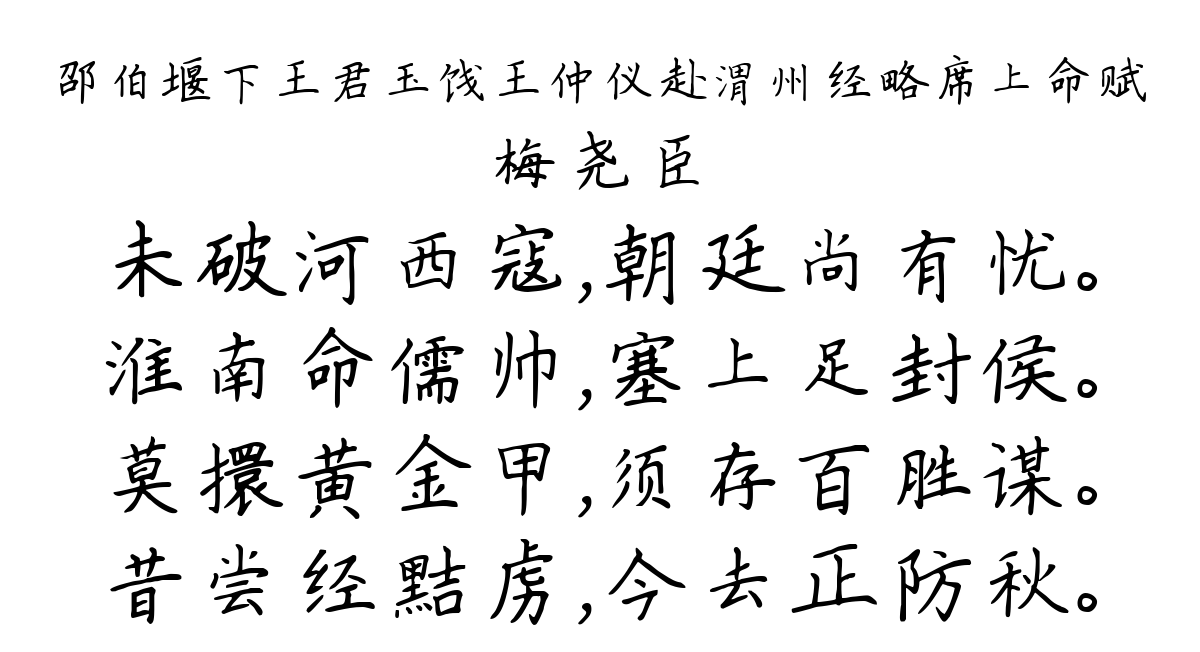 邵伯堰下王君玉饯王仲仪赴渭州经略席上命赋
梅尧臣
未破河西寇,朝廷尚有忧。
淮南命儒帅,塞上足封侯。
莫擐黄金甲,须存百胜谋。
昔尝经黠虏,今去正防秋。